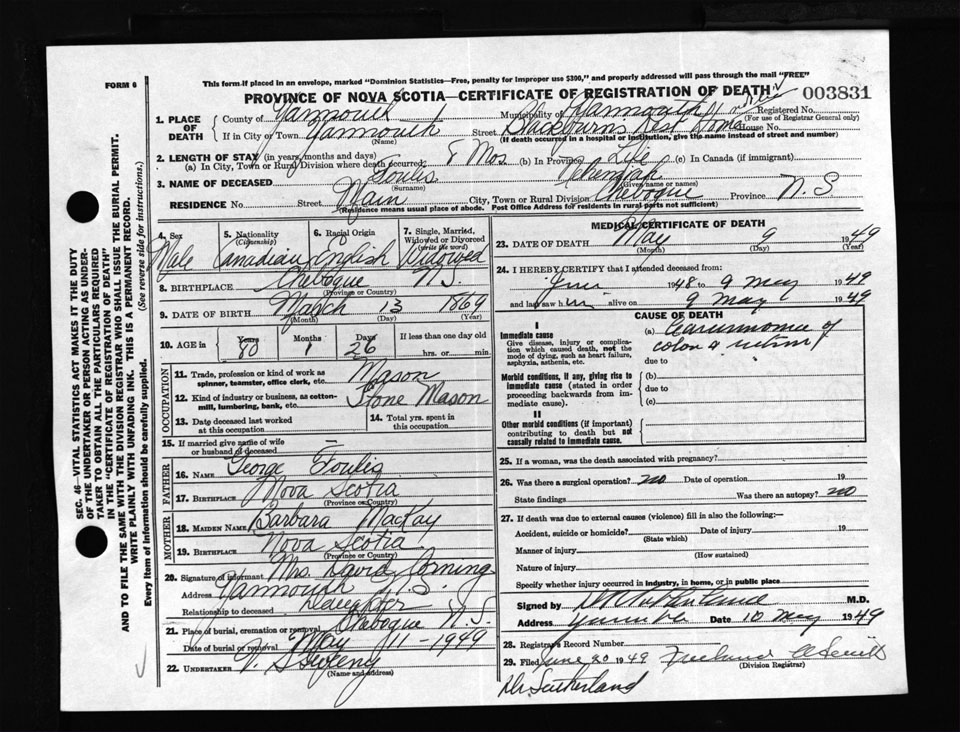 FORM 6
This form if placed in an envelope, marked "Dominion Statistics—Free, penalty for improper use $300," and properly addressed will pass through the mail "FREE"
PROVINCE OF NOVA SCOTIA—CERTIFICATE OF REGISTRATION OF DEATH
003831
1. PLACE OF DEATH
County of Yarmouth Municipality of Yarmouth Registered No.
(For use of Registrar General only)
If in City or Town Yarmouth Street Blackburns Rest Home House No.
(Name) (If death occurred in a hospital or institution, give the name instead of street and number)
2. LENGTH OF STAY (in years, months and days)
(a) In City, Town or Rural Division where death occurred 8 Mos (b) In Province Life (c) In Canada (if immigrant)
3. NAME OF DECEASED Foulis Nehemiah
(Surname) (Given name or names)
RESIDENCE No. Street Main City, Town or Rural Division Chebogue Province N.S
(Residence means usual place of abode. Post Office Address for residents in rural parts not sufficient)
4. Sex 5. Nationality (Citizenship) 6. Racial Origin 7. Single, Married, Widowed or Divorced (write the word)
Male Canadian English Widowed
8. BIRTHPLACE Chebogue N.S.
(Province or Country)
9. DATE OF BIRTH March 13 1869
(Month) (Day) (Year)
10. AGE in Years Months Days If less than one day old
80 1 26 hrs. or min.
OCCUPATION
11. Trade, profession or kind of work as spinner, teamster, office clerk, etc. Mason
12. Kind of industry or business, as cotton-mill, lumbering, bank, etc. Stone Mason
13. Date deceased last worked at this occupation 14. Total yrs. spent in this occupation
15. If married give name of wife or husband of deceased —
FATHER
16. NAME George Foulis
17. BIRTHPLACE Nova Scotia
(Province or Country)
MOTHER
18. MAIDEN NAME Barbara MacKay
19. BIRTHPLACE Nova Scotia
(Province or Country)
20. Signature of informant Mrs. David Corning
Address Yarmouth N.S.
Relationship to deceased Daughter
21. Place of burial, cremation or removal Chebogue N.S.
Date of burial or removal May 11-1949
22. UNDERTAKER V. Sweeny
(Name and address)
MEDICAL CERTIFICATE OF DEATH
23. DATE OF DEATH May 9 1949
(Month) (Day) (Year)
24. I HEREBY CERTIFY that I attended deceased from:
1948 to 9 May 1949
and last saw him alive on 9 May 1949
CAUSE OF DEATH
I
Immediate cause
Give disease, injury or complication which caused death, not the mode of dying, such as heart failure, asphyxia, asthenia, etc.
(a) of
colon
due to
Morbid conditions, if any, giving rise to immediate cause (stated in order proceeding backwards from immediate cause).
(b)
due to
(c)
II
Other morbid conditions (if important) contributing to death but not causally related to immediate cause.
25. If a woman, was the death associated with pregnancy?
26. Was there a surgical operation? no Date of operation 19
State findings Was there an autopsy? no
27. If death was due to external causes (violence) fill in also the following:—
Accident, suicide or homicide? Date of injury 19
(State which)
Manner of injury
(How sustained)
Nature of injury
Specify whether injury occurred in industry, in home, or in public place
Signed by M.D.
Address Date 10 May 1949
28. Registrar's Record Number
29. Filed June 20 1949
(Division Registrar)
Dr. Sutherland
SEC. 46—VITAL STATISTICS ACT MAKES IT THE DUTY
OF THE UNDERTAKER OR PERSON ACTING AS UNDER-
TAKER TO OBTAIN ALL THE PARTICULARS REQUIRED
IN THE "CERTIFICATE OF REGISTRATION OF DEATH"
AND TO FILE THE SAME WITH THE DIVISION REGISTRAR WHO SHALL ISSUE THE BURIAL PERMIT.
WRITE PLAINLY WITH UNFADING INK. THIS IS A PERMANENT RECORD.
Every item of information should be carefully supplied. (See reverse side for instructions.)